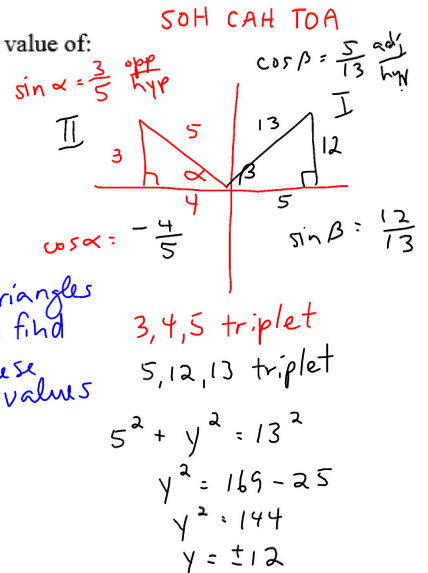 SOH CAH TOA
value of:
sin α = 3/5 opp/hyp
cos β = 5/13 adj/hyp
II
I
5
13
3
12
α
β
4
5
cos α = -4/5
sin β = 12/13
riangles
find
ese
values
3,4,5 triplet
5,12,13 triplet
5² + y² = 13²
y² = 169 - 25
y² = 144
y = ±12